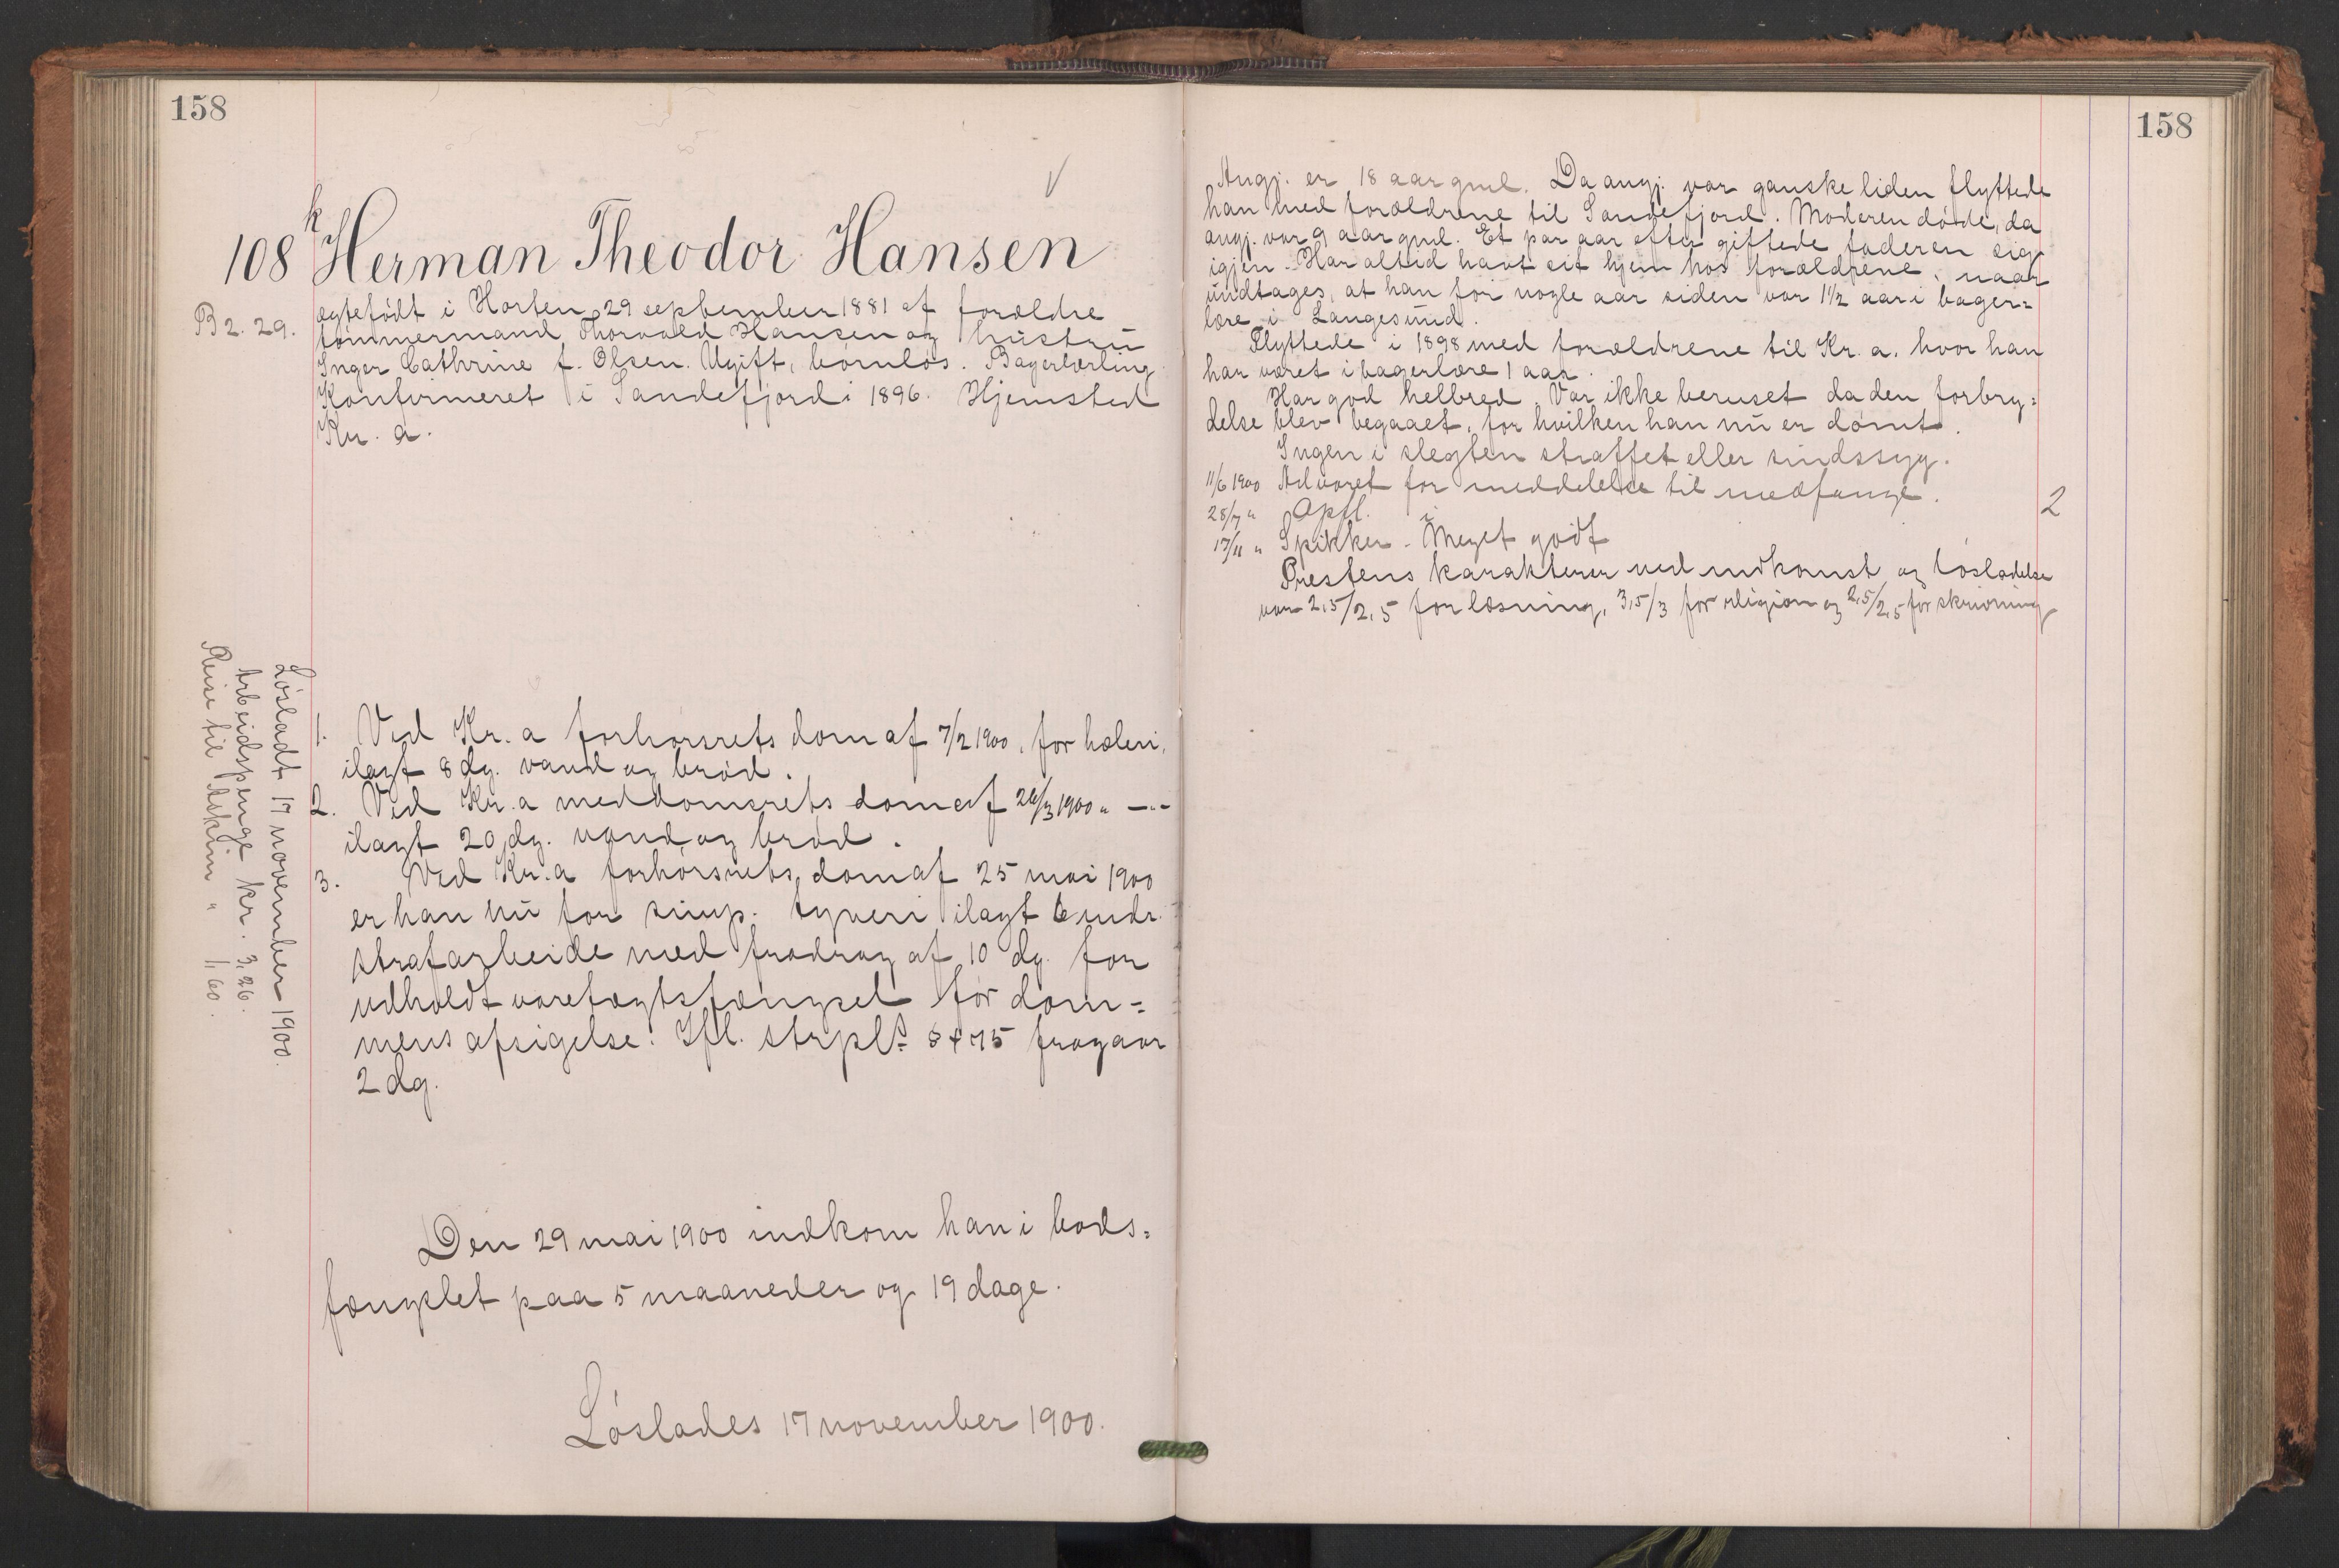 158
108 k Herman Theodor Hansen
B 2. 29.
egtefødt i Horten 29 september 1881 af forældre
tømmermand Thorvald Hansen og hustru
Inger Cathrine f. Olsen. Ugift, børnløs. Bagerlærling
Konfirmeret i Sandefjord i 1896. Hjemsted
Kr. a.
Løsladt 17 november 1900.
Arbeidspenge kr. 3,26.
Reise til " 1,60.
1. Ved Kr. a forhørsrets dom af 7/2 1900, for hæleri,
ilagt 8 dg. vand og brød.
2. Ved Kr. a meddomsrets dom af 26/3 1900 " —"—
ilagt 20 dg. vand og brød.
3. Ved Kr. a forhørsrets dom af 25 mai 1900
er han nu for simp. tyveri ilagt 6 mdr.
strafarbeide med fradrag af 10 dg. for
udholdt varetægtsfængsel før dom=
mens afsigelse. Ifl. strpl. § 475 fragaar
2 dg.
Den 29 mai 1900 indkom han i bods=
fængslet paa 5 maaneder og 19 dage.
Løslades 17 november 1900.
158
Angj. er 18 aar gml. Da angj. var ganske liden flyttede
han med forældrene til Sandefjord. Moderen døde, da
angj. var 9 aar gml. Et par aar efter giftede faderen sig
igjen. Har altid havt sit hjem hos forældrene, naar
undtages, at han for nogle aar siden var 1½ aar i bager=
lære i Langesund.
Flyttede i 1898 med forældrene til Kr. a. hvor han
har været i bagerlære 1 aar.
Har god helbred. Var ikke beruset da den forbry=
delse blev begaaet, for hvilken han nu er dømt.
Ingen i slegten straffet eller sindssyg.
11/6 1900 Advaret for meddelelse til medfange.
28/7 " Opfl. 2
17/11 " Spikker - Meget godt
Prestens karakterer ved indkomst og løsladelse
var 2,5/2,5 for læsning, 3,5/3 for religion og 2,5/2,5 for skrivning